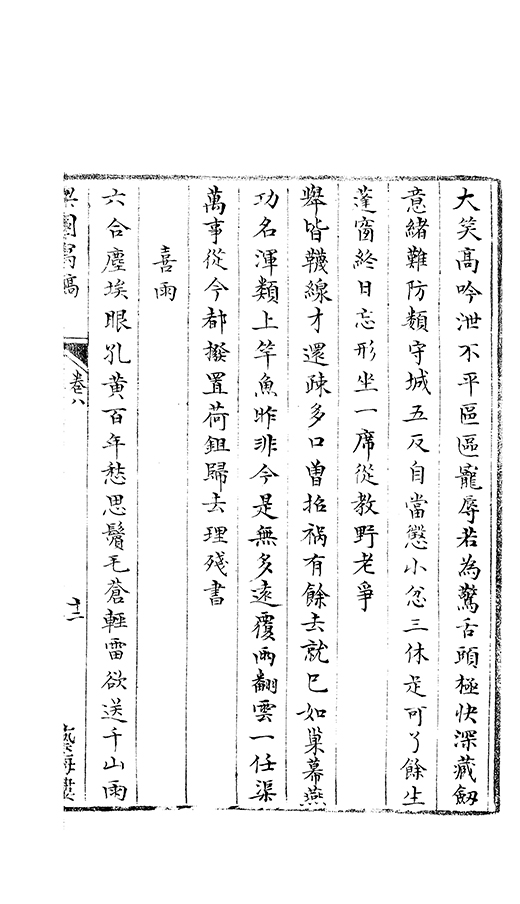 大笑高吟泄不平區區寵辱若為驚舌頭極快深藏劒
意緒難防類守城五反自當懲小忿三休是可了餘生
蓬窗終日忘形坐一席從教野老爭
舉皆韈線才還疎多口曽招禍有餘去就已如巢幕燕
功名渾類上竿魚昨非今是無多逺覆雨翻雲一任渠
萬事從今都撥置荷鉏歸去理殘書
喜雨
六合塵埃眼孔黄百年愁思鬢毛蒼輕雷欲送千山雨
卷八
十二